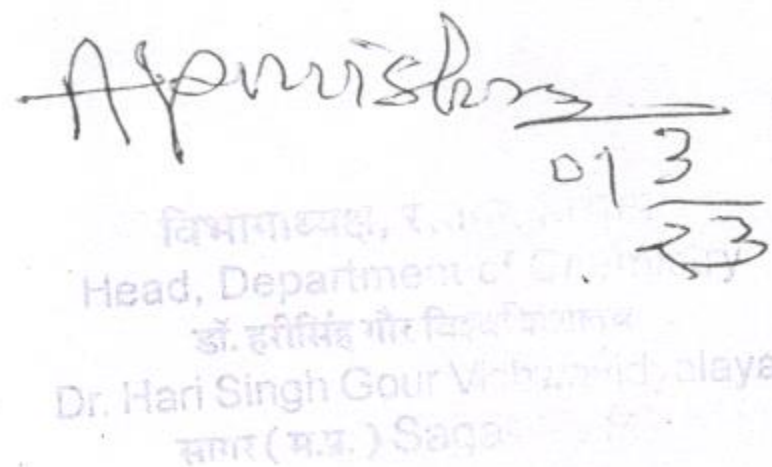 01 3
23
विभागाध्यक्ष,
Head, Department of Chemistry
डॉ. हरीसिंह गौर विश्वविद्यालय
Dr. Hari Singh Gour Vishwavidyalaya
सागर (म.प्र.) Sagar